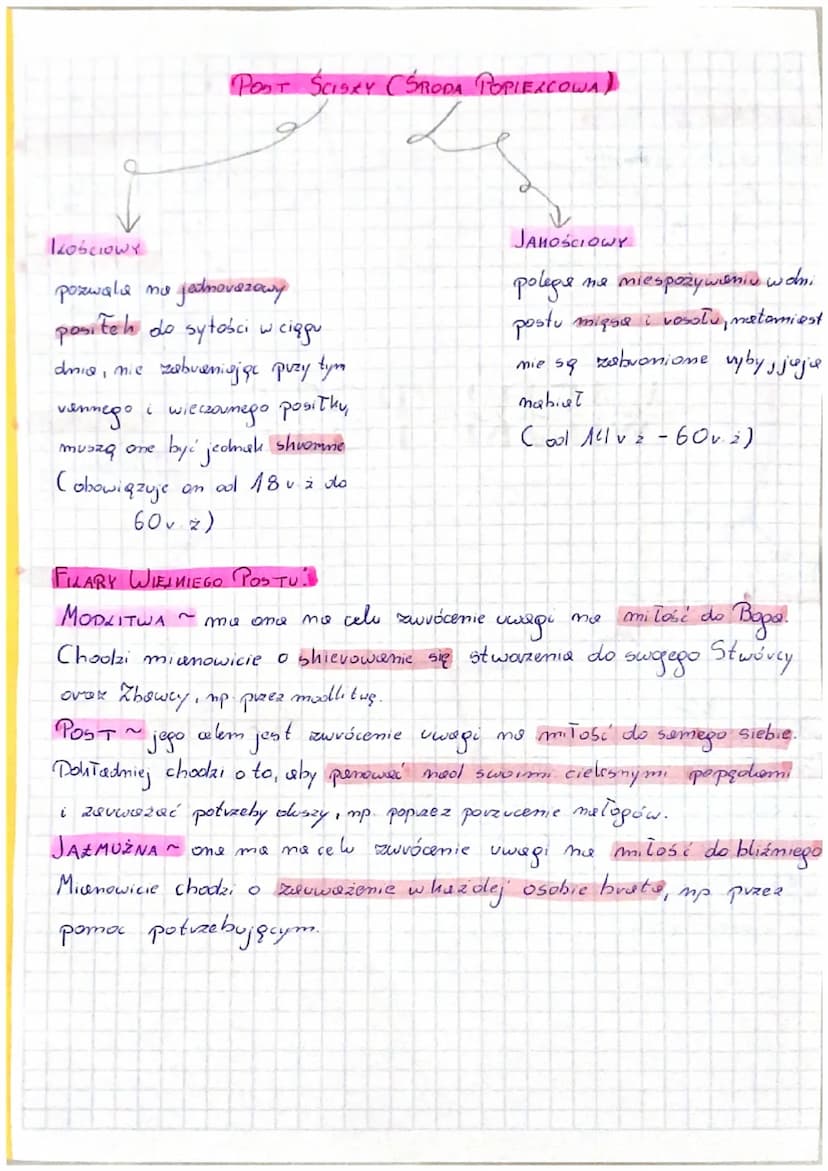 POST ŚCISŁY (ŚRODA POPIELCOWA)
ILOŚCIOWY
pozwala na jednorazowy
posiłek do sytości w ciągu
dnia, nie zabraniając przy tym
rannego i wieczornego posiłku,
muszą one być jednak skromne
(obowiązuje on od 18 r ż do
60 r ż)
JAKOŚCIOWY
polega na niespożywaniu w dni
postu mięsa i rosołu, natomiast
nie są zabronione ryby, jaja
nabiał
(od 14 r ż - 60 r ż)
FILARY WIELKIEGO POSTU:
MODLITWA ~ ma ona na celu zwrócenie uwagi na miłość do Boga.
Chodzi mianowicie o skierowanie się stworzenia do swojego Stwórcy
oraz Zbawcy, np. przez modlitwę.
POST ~ jego celem jest zwrócenie uwagi na miłość do samego siebie.
Dokładniej chodzi o to, aby panować nad swoimi cielesnymi popędami
i zauważać potrzeby duszy, np. poprzez porzucenie nałogów.
JAŁMUŻNA ~ ona ma na celu zwrócenie uwagi na miłość do bliźniego
Mianowicie chodzi o zauważenie w każdej osobie brata, np przez
pomoc potrzebującym.